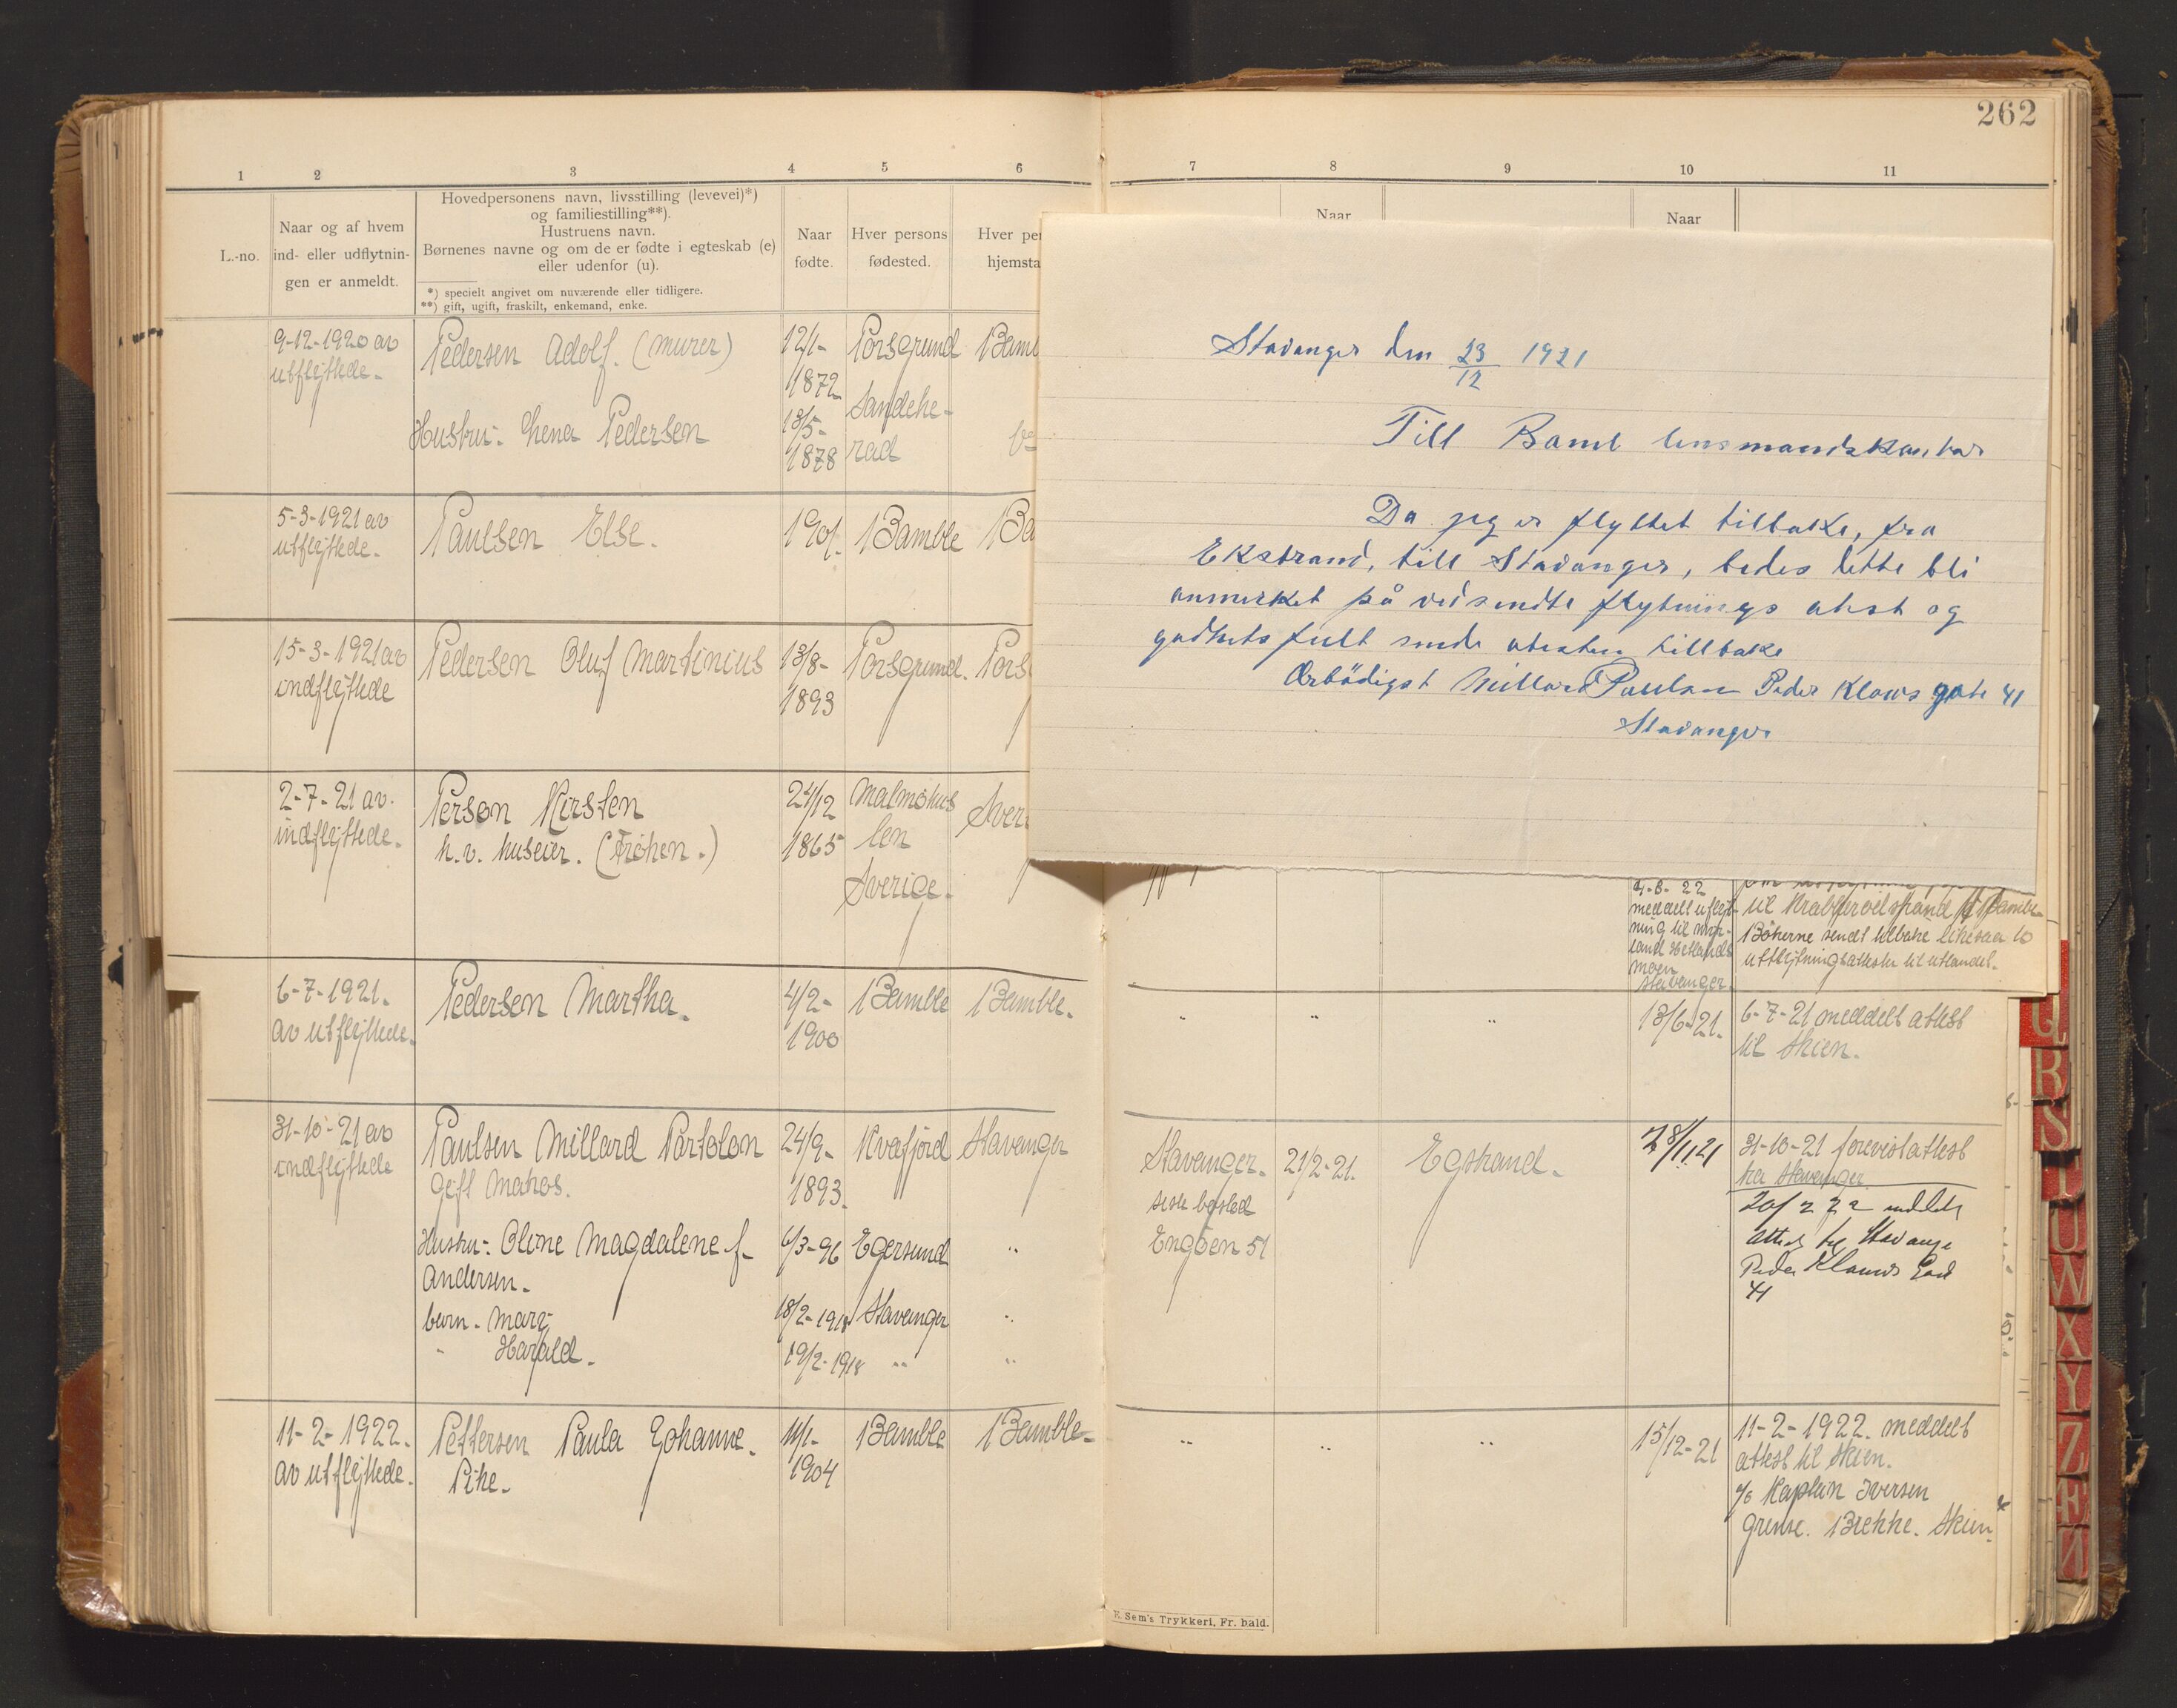 262
1 2 3 4 5 6
7 8 9 10 11
L.-no.
Naar og af hvem
ind- eller udflytnin-
gen er anmeldt.
Hovedpersonens navn, livsstilling (levevei)*)
og familiestilling**).
Hustruens navn.
Børnenes navne og om de er fødte i egteskab (e)
eller udenfor (u).
*) specielt angivet om nuværende eller tidligere.
**) gift, ugift, fraskilt, enkemand, enke.
Naar
fødte.
Hver persons
fødested.
Hver per
hjemsta
Naar
Naar
9-12-1920 av
utflyttede-
Pedersen Adolf. (murer)
12/1-
1872
Porsgrund
Bamb
Hustru:- Lena Pedersen
13/5-
1878
Sandehe-
rad
5-3-1921 av
utflyttede-
Paulsen Else.
1901.
Bamble
Ba
15-3-1921 av
indflyttede
Pedersen Oluf Martinius
13/8-
1893
Porsgrund.
Pors
2-7-21 av.
indflyttede.
Person Kirsten
h.v. huseier. (Frøken.)
24/12
1865
Malmöhus
len
Sverige.
Sver
Stavanger den 23/12 1921
Till Bamb lensmandskontor
Da jeg er flyttet tilbake, fra
Ekstrand, till Stavanger, bedes dette bli
anmerket på vedsendte flytnings atest og
godhetsfult sende atesten tillbake
Ærbödigst Millard Paulsen Peder Klows gate 41
Stavanger
4-6-22
meddelt utflyt-
ning til
land Hetlands
moen
Stavanger.
til Krabbervelstrand i Bamble
Bökerne sendt tilbake likesaa to
utflytningsattester til utlandet.
6-7-1921.
av utflyttede.
Pedersen Martha.
4/2-
1900
Bamble
Bamble.
" " "
13/6-21.
6-7-21 meddelt attest
til Skien.
31-10-21 av
indflyttede
Paulsen Millard Partolon
Gift Matros.
24/9-
1893.
Kvæfjord
Stavanger
Stavanger.
siste bosted
Engöen 51
21/2-21.
Egstrand.
28/11 21
31-10-21 forevist attest
fra Stavanger
20/2 22 meddelt
attest til Stavange
Peder Klauws Gade
41
Hustru:- Oline Magdalene f-
Andersen.
6/3-96
Egersund
"
barn- Mary
18/2-1918
Stavanger
"
" Harald.
19/2-1918
" "
11-2-1922.
av utflyttede.
Pettersen Paula Johanne.
Pike.
11/1-
1904
Bamble
Bamble-
" " "
15/12-21
11-2-1922. meddelt
attest til Skien.
c/o Kaptein Iversen
Grense. Brekke. Skien.
E. Sem's Trykkeri, Fr.hald.
Q
R
S
T
U
W
X
Y
Z
Æ